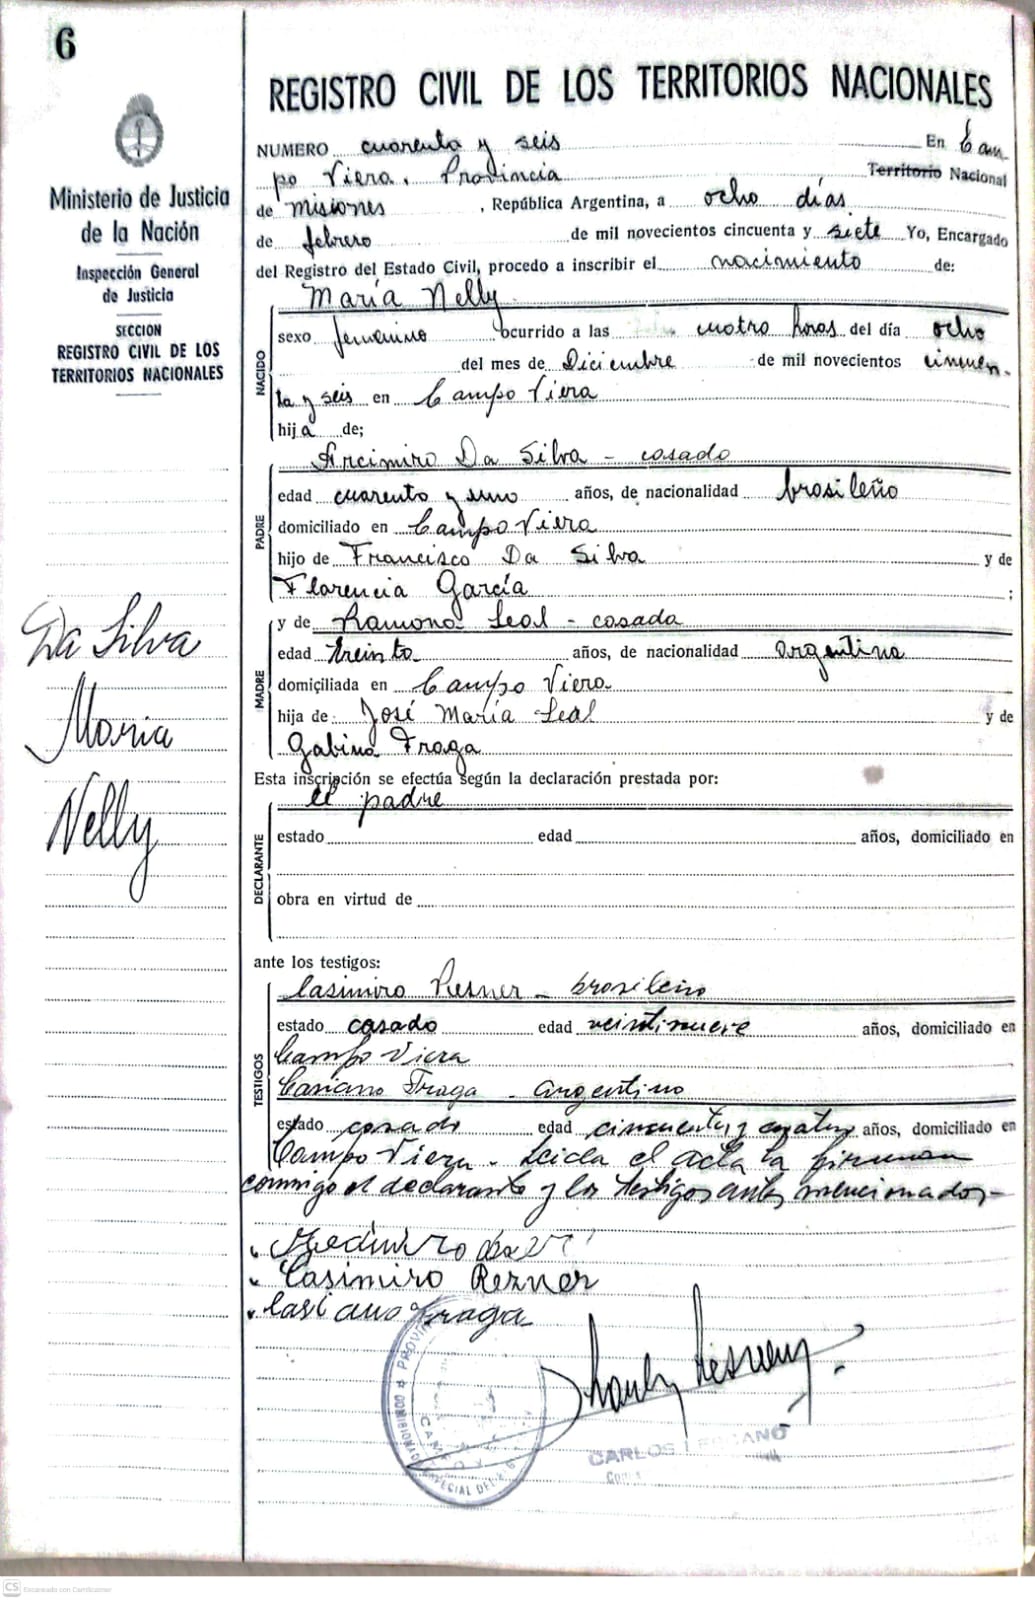 6
Ministerio de Justicia
de la Nación
Inspección General
de Justicia
SECCION
REGISTRO CIVIL DE LOS
TERRITORIOS NACIONALES
Da Silva
Maria
Nelly
REGISTRO CIVIL DE LOS TERRITORIOS NACIONALES
NUMERO cuarenta y seis En Cam
po Viera. Provincia Territorio Nacional
de misiones, República Argentina, a ocho días
de febrero de mil novecientos cincuenta y siete Yo, Encargado
del Registro del Estado Civil, procedo a inscribir el nacimiento de:
María Nelly
NACIDO
sexo femenino ocurrido a las cuatro horas del día ocho
del mes de Diciembre de mil novecientos cincuen-
ta y seis en Campo Viera
hija de;
Arcimiro Da Silva - casado
PADRE
edad cuarenta y uno años, de nacionalidad brasileño
domiciliado en Campo Viera
hijo de Francisco Da Silva y de
Florencia García ;
y de Ramona Leal - casada
MADRE
edad treinta años, de nacionalidad argentina
domiciliada en Campo Viera
hija de José María Leal y de
Gabina Fraga
Esta inscripción se efectúa según la declaración prestada por:
el padre
DECLARANTE
estado edad años, domiciliado en
obra en virtud de
ante los testigos:
Casimiro Rezner - brasileño
TESTIGOS
estado casado edad veintinueve años, domiciliado en
Campo Viera
Casiano Fraga - argentino
estado casado edad cincuenta y cuatro años, domiciliado en
Campo Viera - Leída el acta la firman
conmigo el declarante y los testigos antes mencionados-
Casimiro Rezner
Casiano Fraga
CARLOS
CS Escaneado con CamScanner